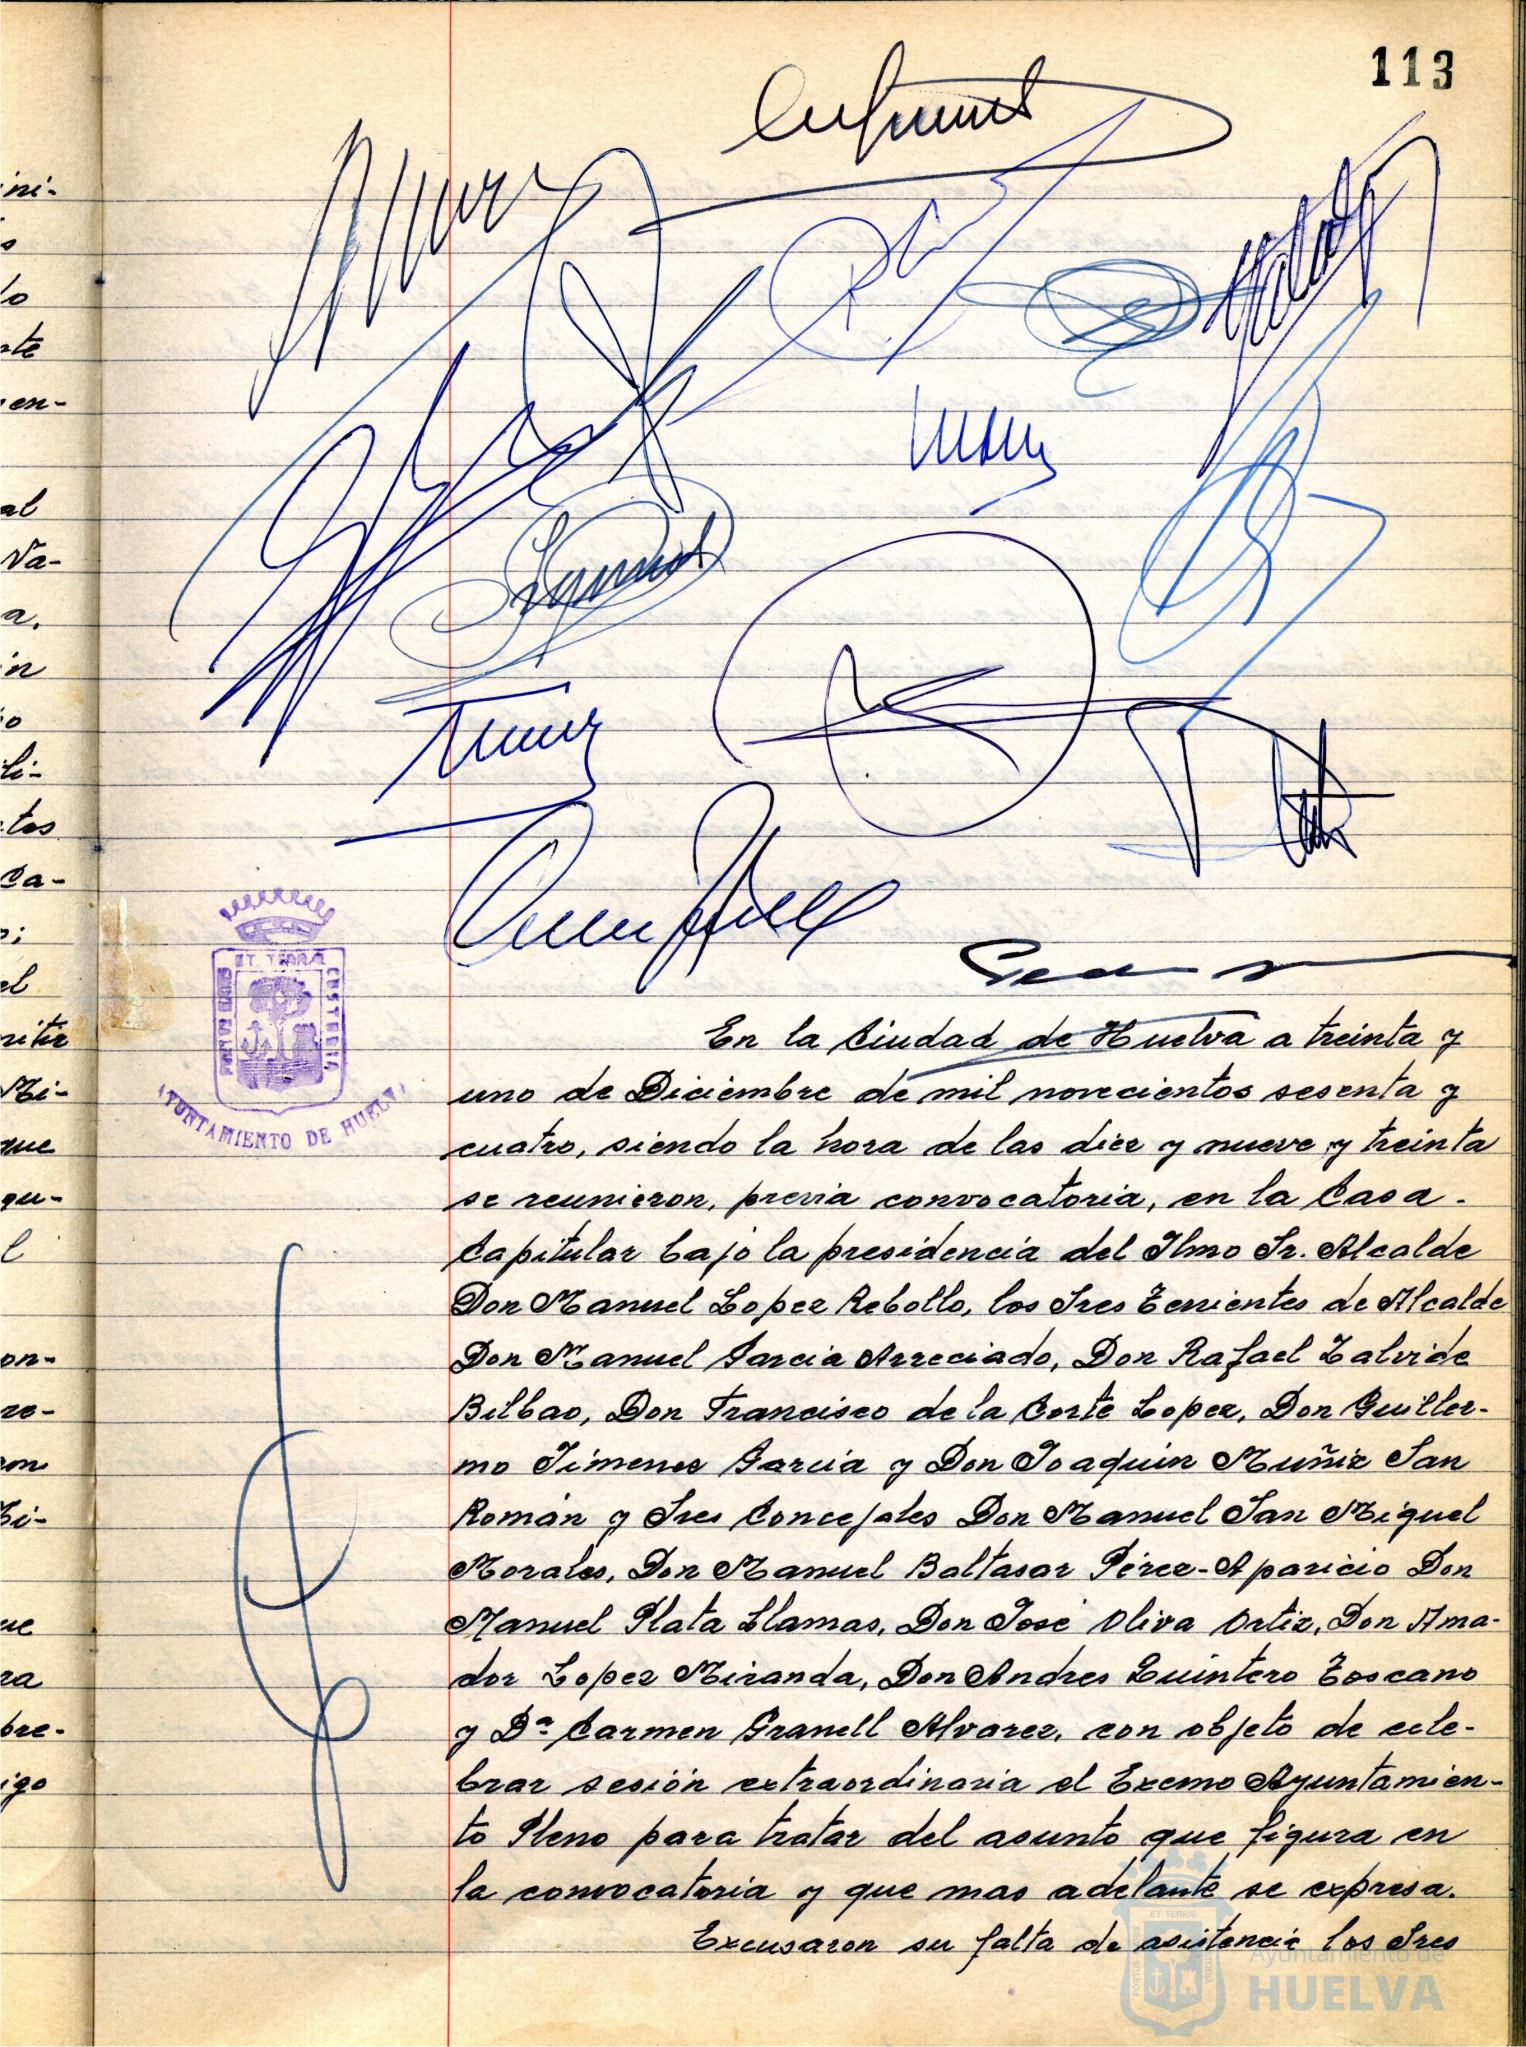 113
En la Ciudad de Huelva a treinta y
uno de Diciembre de mil novecientos sesenta y
cuatro, siendo la hora de las diez y nueve y treinta
se reunieron, previa convocatoria, en la Casa
Capitular bajo la presidencia del Ilmo Sr. Alcalde
Don Manuel Lopez Rebollo, los Sres Tenientes de Alcalde
Don Manuel Garcia Arreciado, Don Rafael Zalvide
Bilbao, Don Francisco de la Corte Lopez, Don Guiller-
mo Jimenez Garcia y Don Joaquin Muñiz San
Román y Sres Concejales Don Manuel San Miguel
Morales, Don Manuel Baltasar Pérez-Aparicio Don
Manuel Plata Llamas, Don José Oliva Ortiz, Don Ama-
dor Lopez Miranda, Don Andres Quintero Toscano
y Dª Carmen Granell Alvarez, con objeto de cele-
brar sesión extraordinaria el Excmo Ayuntamien-
to Pleno para tratar del asunto que figura en
la convocatoria y que mas adelante se expresa.
Excusaron su falta de asistencia los Sres
PORTUS MARIS ET TERRÆ CUSTODIA
AYUNTAMIENTO DE HUELVA
ini-
s
lo
ste
en-
al
Va-
a.
in
io
li-
tos
Ca-
o;
el
mitir
Mi-
que
qu-
l
on-
re-
on
ue
ra
bre-
igo
Ayuntamiento de
HUELVA